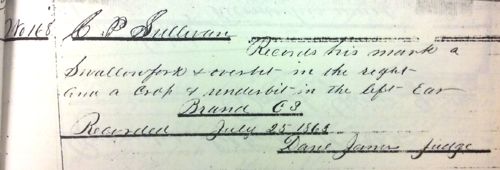 No 168 C P Sullivan
Records his mark a
Swallowfork & overbit in the right
and a Crop & underbit in the left Ear
Brand
Recorded July 25 1868
James Judge